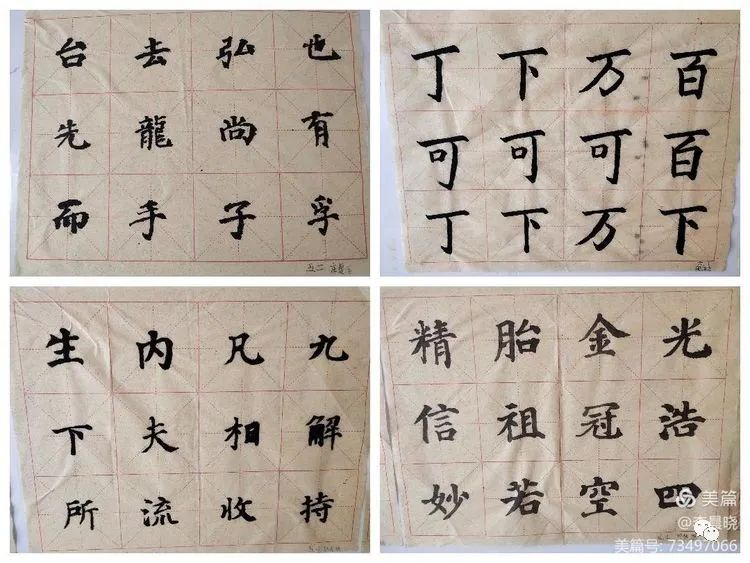 台去弘也
先龍尚有
而手子孚
丁下万百
可可可百
丁下万下
生内凡九
下夫相解
所流收持
精胎金光
信祖冠浩
妙若空四
美篇
晨晓
美篇号: 73497066